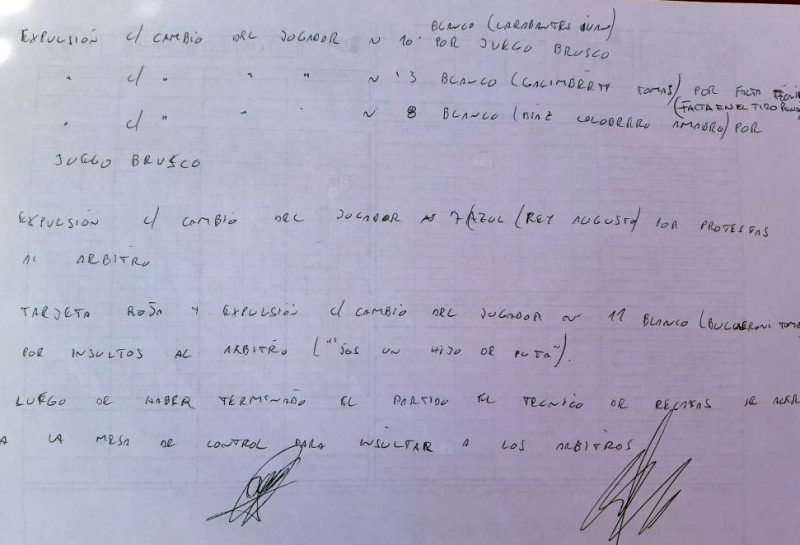 BLANCO (CARABANTES JUAN)
EXPULSIÓN C/ CAMBIO DEL JUGADOR N 10 POR JUEGO BRUSCO
" C/ " " " N 3 BLANCO (GALIMBERTI TOMAS) POR FALTA
(FALTA EN EL TIRO
" C/ " " " N 8 BLANCO (DIAZ COLODRERO AMADEO) POR
JUEGO BRUSCO
EXPULSIÓN C/ CAMBIO DEL JUGADOR N 7 AZUL (REY AUGUSTO) POR PROTESTAS
AL ARBITRO
TARJETA ROJA + EXPULSIÓN C/ CAMBIO DEL JUGADOR N 11 BLANCO (
POR INSULTOS AL ARBITRO ("SOS UN HIJO DE PUTA").
LUEGO DE HABER TERMINADO EL PARTIDO EL TECNICO DE REGATAS SE
A LA MESA DE CONTROL PARA INSULTAR A LOS ARBITROS